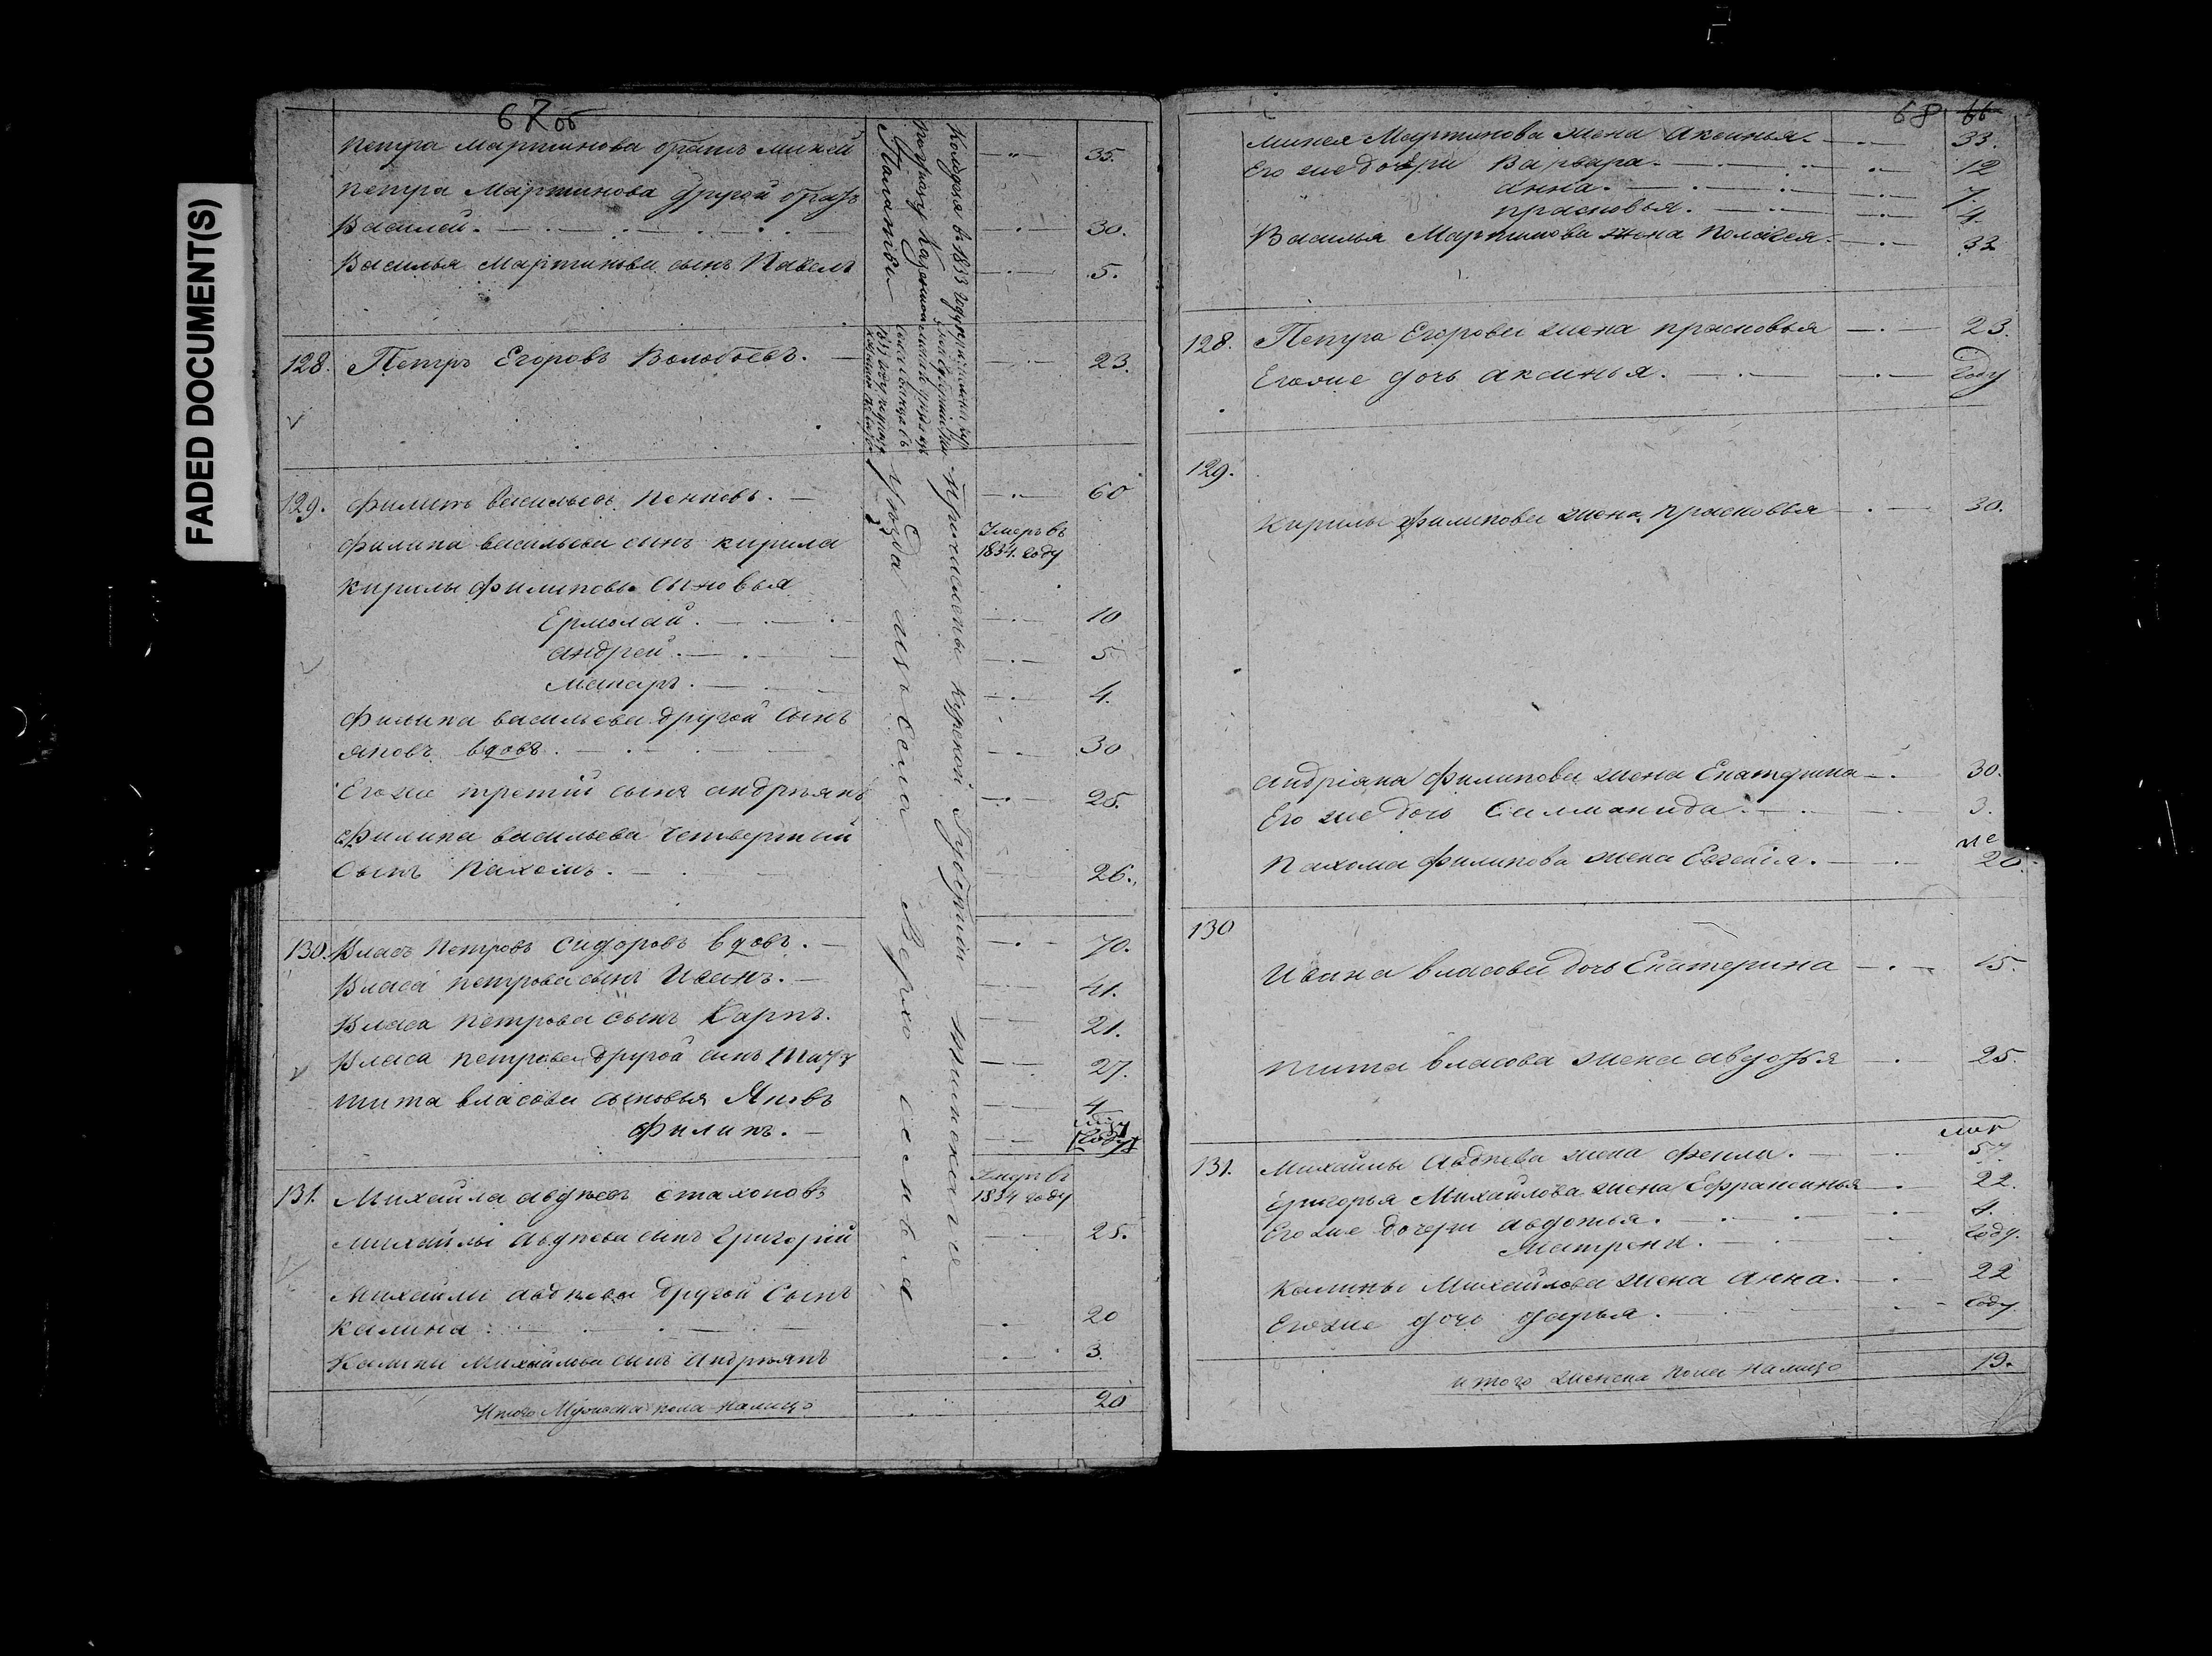 FADED DOCUMENT(S)
67 об
Петра Мартинова братъ Михей 35.
Петра Мартинова другой братъ
Василей. 30.
Василья Мартинова сынъ Павелъ 5.
128. Петръ Егоровъ Волобоевъ. 23.
129. Филипъ Васильевъ Пенковъ. 60
Филипа Васильева сынъ Кирила Умеръ въ 1834. году
Кирилы Филипова сыновья
Ермолай. 10
Андрей. 5
Макаръ. 4.
Филипа Васильева другой сынъ
Яковъ вдовъ. 30
Егоже третий сынъ Андреянъ 25.
Филипа Васильева четвертый
сынъ Пахомъ. 26.
130. Власъ Петровъ Сидоровъ вдовъ. 70.
Власа Петрова сынъ Иванъ. 41.
Власа Петрова сынъ Карпъ. 21.
Власа Петрова другой сынъ Титъ 27.
Тита Власова сыновья Яковъ 4
Филипъ. году
131. Михайла Авдеевъ Стахоновъ Умеръ въ 1834 году
Михайлы Авдеева сынъ Григорий 25.
Михайлы Авдеева другой сынъ
Калина. 20
Калины Михайлова сынъ Андреянъ 3.
Итого Мужеска пола налицо 20
Палатою
уезда изъ села Верхо сеньея
причислены Курской Губернии Тимскаго
68 66
Михея Мартинова жена Аксинья 33.
Его же дочери Варвара. 12
Анна. 7.
Прасковья. 4.
Василья Мартинова жена Полагея 32
128. Петра Егорова жена Прасковья 23.
Егоже дочь Аксинья. году
129.
Кирилы Филипова жена Прасковья 30.
Андрiяна Филипова жена Екатерина 30.
Его же дочь Салманида. 3.
Пахома Филипова жена Евгенiя. 20.
130
Ивана Власова дочь Екатерина 15.
Тита Власова жена Авдотья 25.
131. Михайлы Авдеева жена Фекла. 57.
Григорья Михайлова жена Ефрансинья 22.
Его же дочери Авдотья. 4.
Матрена. году.
Калины Михайлова жена Анна. 22
Егоже дочь Дарья. году.
итого женска пола налицо 19.